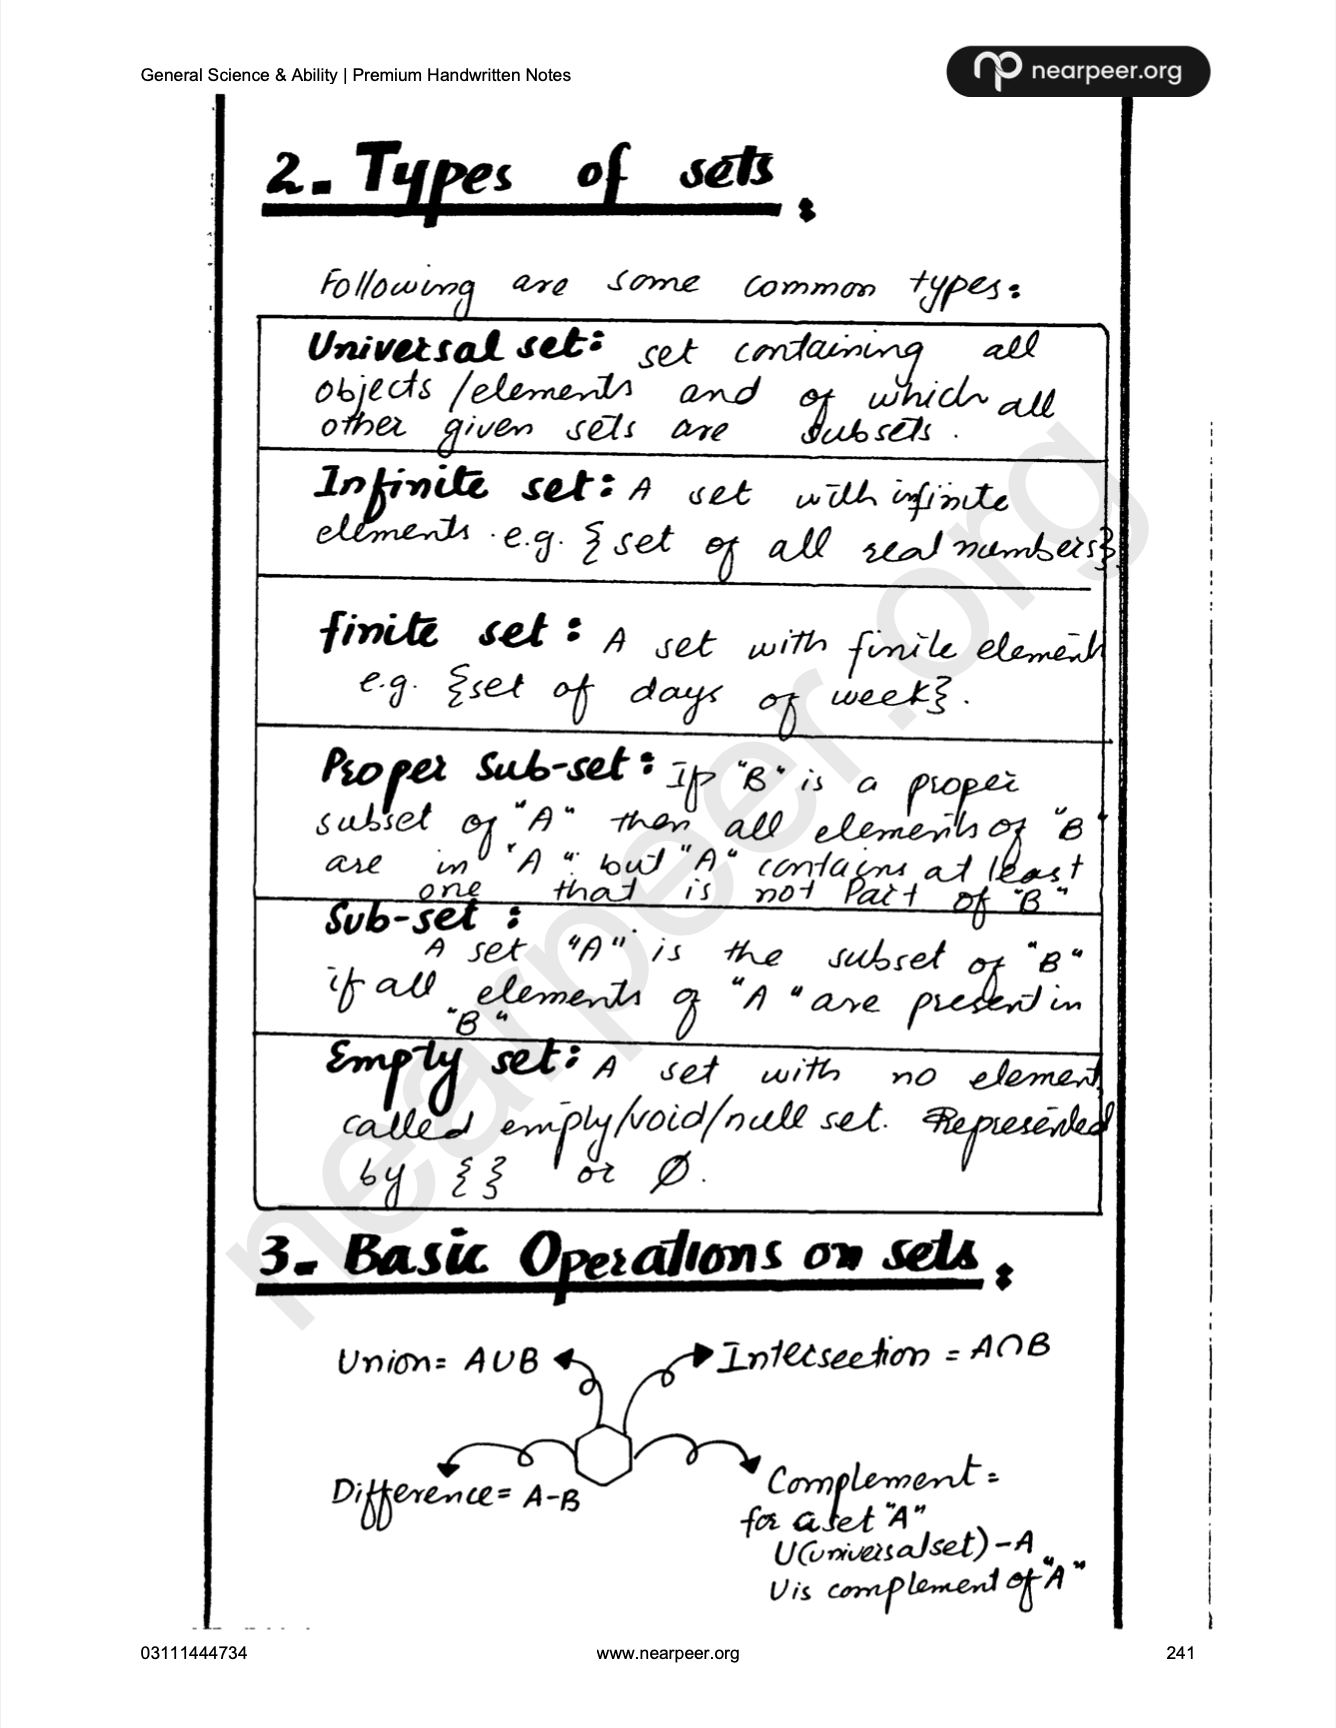 General Science & Ability | Premium Handwritten Notes
nearpeer.org
2. Types of sets :
Following are some common types:
Universal set: set containing all
objects/elements and of which all
other given sets are subsets.
Infinite set: A set with infinite
elements. e.g. {set of all real numbers}.
finite set: A set with finite element
e.g. {set of days of week}.
Proper Sub-set: If "B" is a proper
subset of "A" then all elements of "B"
are in "A" but "A" contains at least
one that is not Part of "B"
Sub-set :
A set "A" is the subset of "B"
if all elements of "A" are present in
"B"
Empty set: A set with no element
called empty/void/null set. Represented
by {} or Ø.
3. Basic Operations on sets :
Union = A∪B
Intersection = A∩B
Difference = A-B
Complement =
for a set "A"
U(universal set) - A
U is complement of "A"
nearpeer.org
03111444734
www.nearpeer.org
241